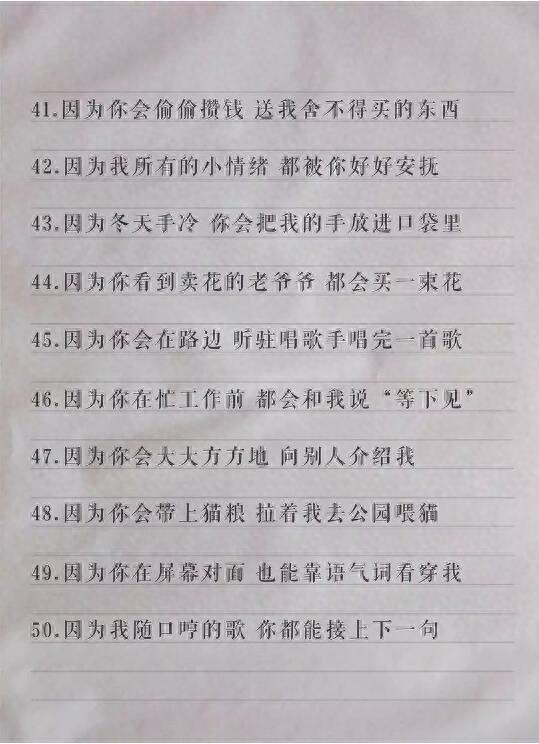 41.因为你会偷偷攒钱 送我舍不得买的东西
42.因为我所有的小情绪 都被你好好安抚
43.因为冬天手冷 你会把我的手放进口袋里
44.因为你看到卖花的老爷爷 都会买一束花
45.因为你会在路边 听驻唱歌手唱完一首歌
46.因为你在忙工作前 都会和我说“等下见”
47.因为你会大大方方地 向别人介绍我
48.因为你会带上猫粮 拉着我去公园喂猫
49.因为你在屏幕对面 也能靠语气词看穿我
50.因为我随口哼的歌 你都能接上下一句